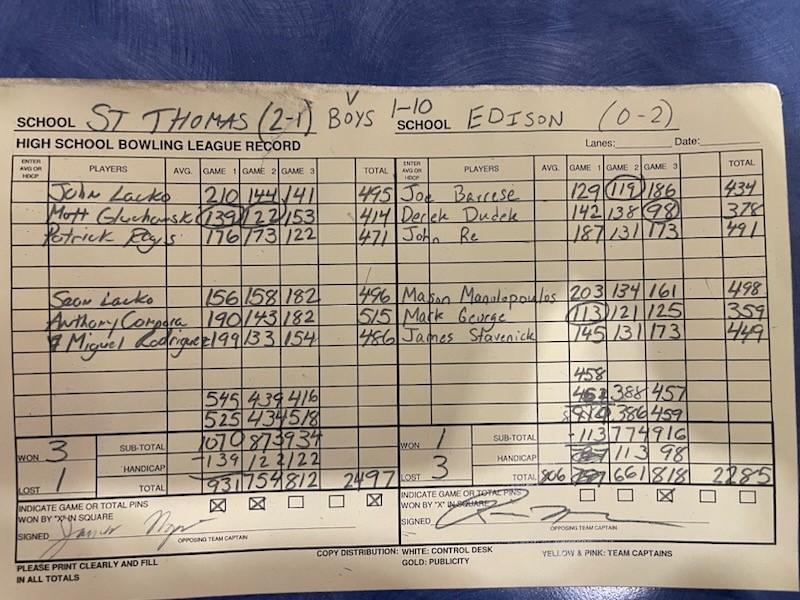 SCHOOL ST THOMAS (2-1) V BOYS 1-10 SCHOOL EDISON (0-2)
HIGH SCHOOL BOWLING LEAGUE RECORD Lanes: Date:
ENTER AVG OR HDCP PLAYERS AVG. GAME 1 GAME 2 GAME 3 TOTAL ENTER AVG OR HDCP PLAYERS AVG. GAME 1 GAME 2 GAME 3 TOTAL
John Lacko 210 144 141 495 Joe Barrese 129 119 186 434
Matt 139 122 153 414 Derek Dudek 142 138 98 378
Patrick 176 173 122 471 John Re 187 131 173 491
Sean Lacko 156 158 182 496 Mason Manolopoulos 203 134 161 498
Anthony Compora 190 143 182 515 Mark George 113 121 125 359
Miguel Rodriguez 199 133 154 486 James Stavenick 145 131 173 449
458
545 439 416 388 457
525 434 518 386 459
WON 3 SUB-TOTAL 1070 873 934 WON 1 SUB-TOTAL -113 774 916
HANDICAP -139 122 122 HANDICAP 113 98
LOST 1 TOTAL 931 754 812 2497 LOST 3 TOTAL 806 661 818 2285
INDICATE GAME OR TOTAL PINS WON BY "X" IN SQUARE X X X INDICATE GAME OR TOTAL PINS WON BY "X" IN SQUARE X
SIGNED OPPOSING TEAM CAPTAIN SIGNED OPPOSING TEAM CAPTAIN
PLEASE PRINT CLEARLY AND FILL IN ALL TOTALS
COPY DISTRIBUTION: WHITE: CONTROL DESK YELLOW & PINK: TEAM CAPTAINS
GOLD: PUBLICITY